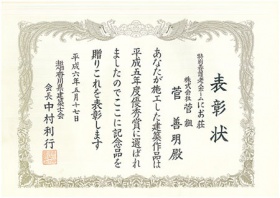 表彰状
特別養護老人ホームにお荘
株式会社 菅組
菅 善明 殿
あなたが施工した建築作品は
平成五年度優秀賞に選ばれ
ましたのでここに記念品を
贈りこれを表彰します
平成六年五月十七日
香川県建築士会
会長 中村利行